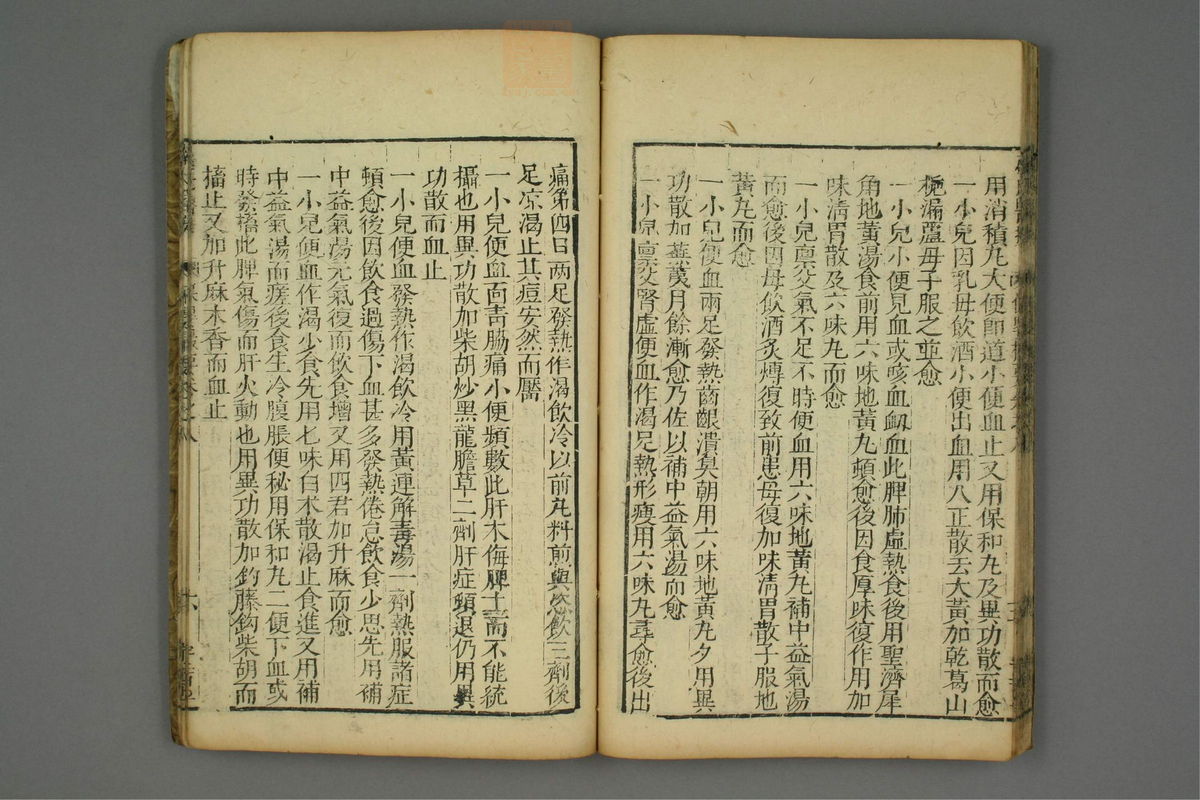 用消積丸大便即道小便血止又用保和丸及異功散而愈
一小兒因乳母飲酒小便出血用八正散去大黃加乾葛山
梔漏蘆母子服之並愈
一小兒小便見血或咳血衂血此脾肺虛熱食後用聖濟犀
角地黃湯食前用六味地黃丸頓愈後因食厚味復作用加
味清胃散及六味丸而愈
一小兒禀父氣不足不時便血用六味地黃丸補中益氣湯
而愈後因母飲酒炙煿復致前患母復加味清胃散子服地
黃丸而愈
一小兒便血兩足發熱齒齦潰臭朝用六味地黃丸夕用異
功散加蕪荑月餘漸愈乃佐以補中益氣湯而愈
一小兒禀父腎虛便血作渴足熱形瘦用六味丸尋愈後出
痘第四日两足發熱作渴飲冷以前丸料煎與恣飲三劑後
足凉渴止其痘安然而靨
一小兒便血面青脇痛小便頻數此肝木侮脾土而不能統
攝也用異功散加柴胡炒黑龍膽草二劑肝症頓退仍用異
功散而血止
一小兒便血發熱作渴飲冷用黃連解毒湯一劑熱服諸症
頓愈後因飲食過傷下血甚多發熱倦怠飲食少思先用補
中益氣湯元氣復而飲食增又用四君加升麻而愈
一小兒便血作渴少食先用七味白术散渴止食進又用補
中益氣湯而瘥後食生冷腹脹便秘用保和丸二便下血或
時發搐此脾氣傷而肝火動也用異功散加釣藤鈎柴胡而
搐止又加升麻木香而血止